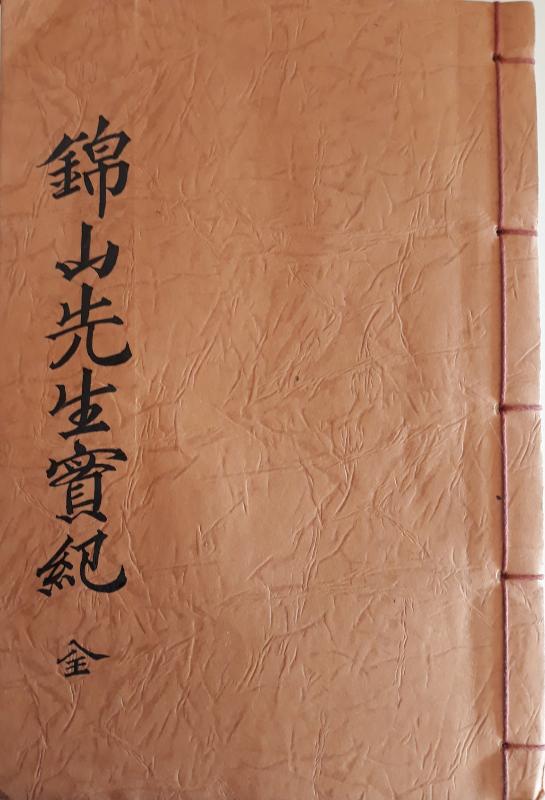 錦山先生實紀 全